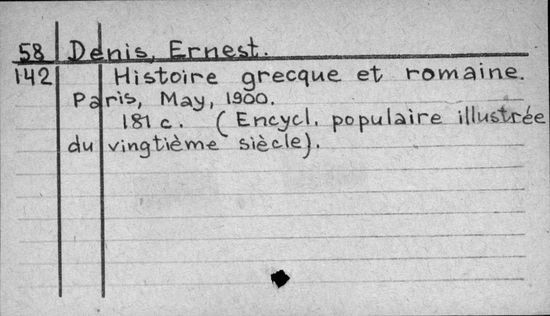 58 Denis, Ernest.
142 Histoire grecque et romaine.
Paris, May, 1900.
181 c. (Encycl. populaire illustrée
du vingtième siècle).